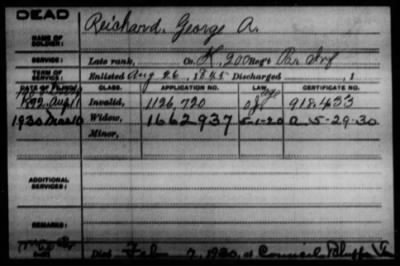 DEAD
NAME OF SOLDIER: Reichard, George A.
SERVICE: Late rank, Co. K, 200 Reg't Pa Inf
TERM OF SERVICE: Enlisted Aug 26, 1845 Discharged , 1
DATE OF FILING. CLASS. APPLICATION NO. LAW. CERTIFICATE NO.
1892 Aug 11 Invalid, 1126,720 918,433
1930 Mar 10 Widow, 1662937 5-1-20 A 5-29-30
Minor,
ADDITIONAL SERVICES:
REMARKS:
Died Feb 7, 1930, at Council Bluffs